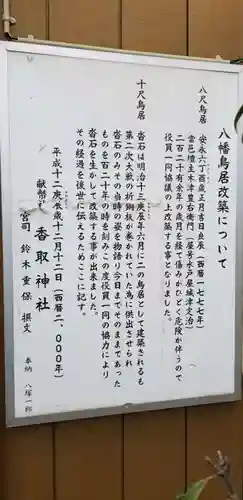 八幡鳥居改築について
八尺鳥居　安永六丁酉歳正月吉日金辰（西暦一七七七年）
當邑壇主木津豊右衛門（屋号水戸屋城津定治）
二百二十有余年の歳月を経て傷みがひどく危険が伴うので
役員一同協議の上改築する事となりました。
十尺鳥居　沓石は明治十三庚辰年六月に二の鳥居として建築されるも
第二次大戦の折銅板が巻かれていた為に供出させられ
沓石のみその当時の姿を物語り今日までそのままであった
ものを百二十年の時を刻みこの度役員一同の協力により
沓石を生かして改築する事が出来ました。
その経過を後世に伝えるためここに記す。
平成十二庚辰歳十二月十二日（西暦二、〇〇〇年）
献幣
香取神社
宮司　鈴木重保　撰文
奉納　八塚一郎